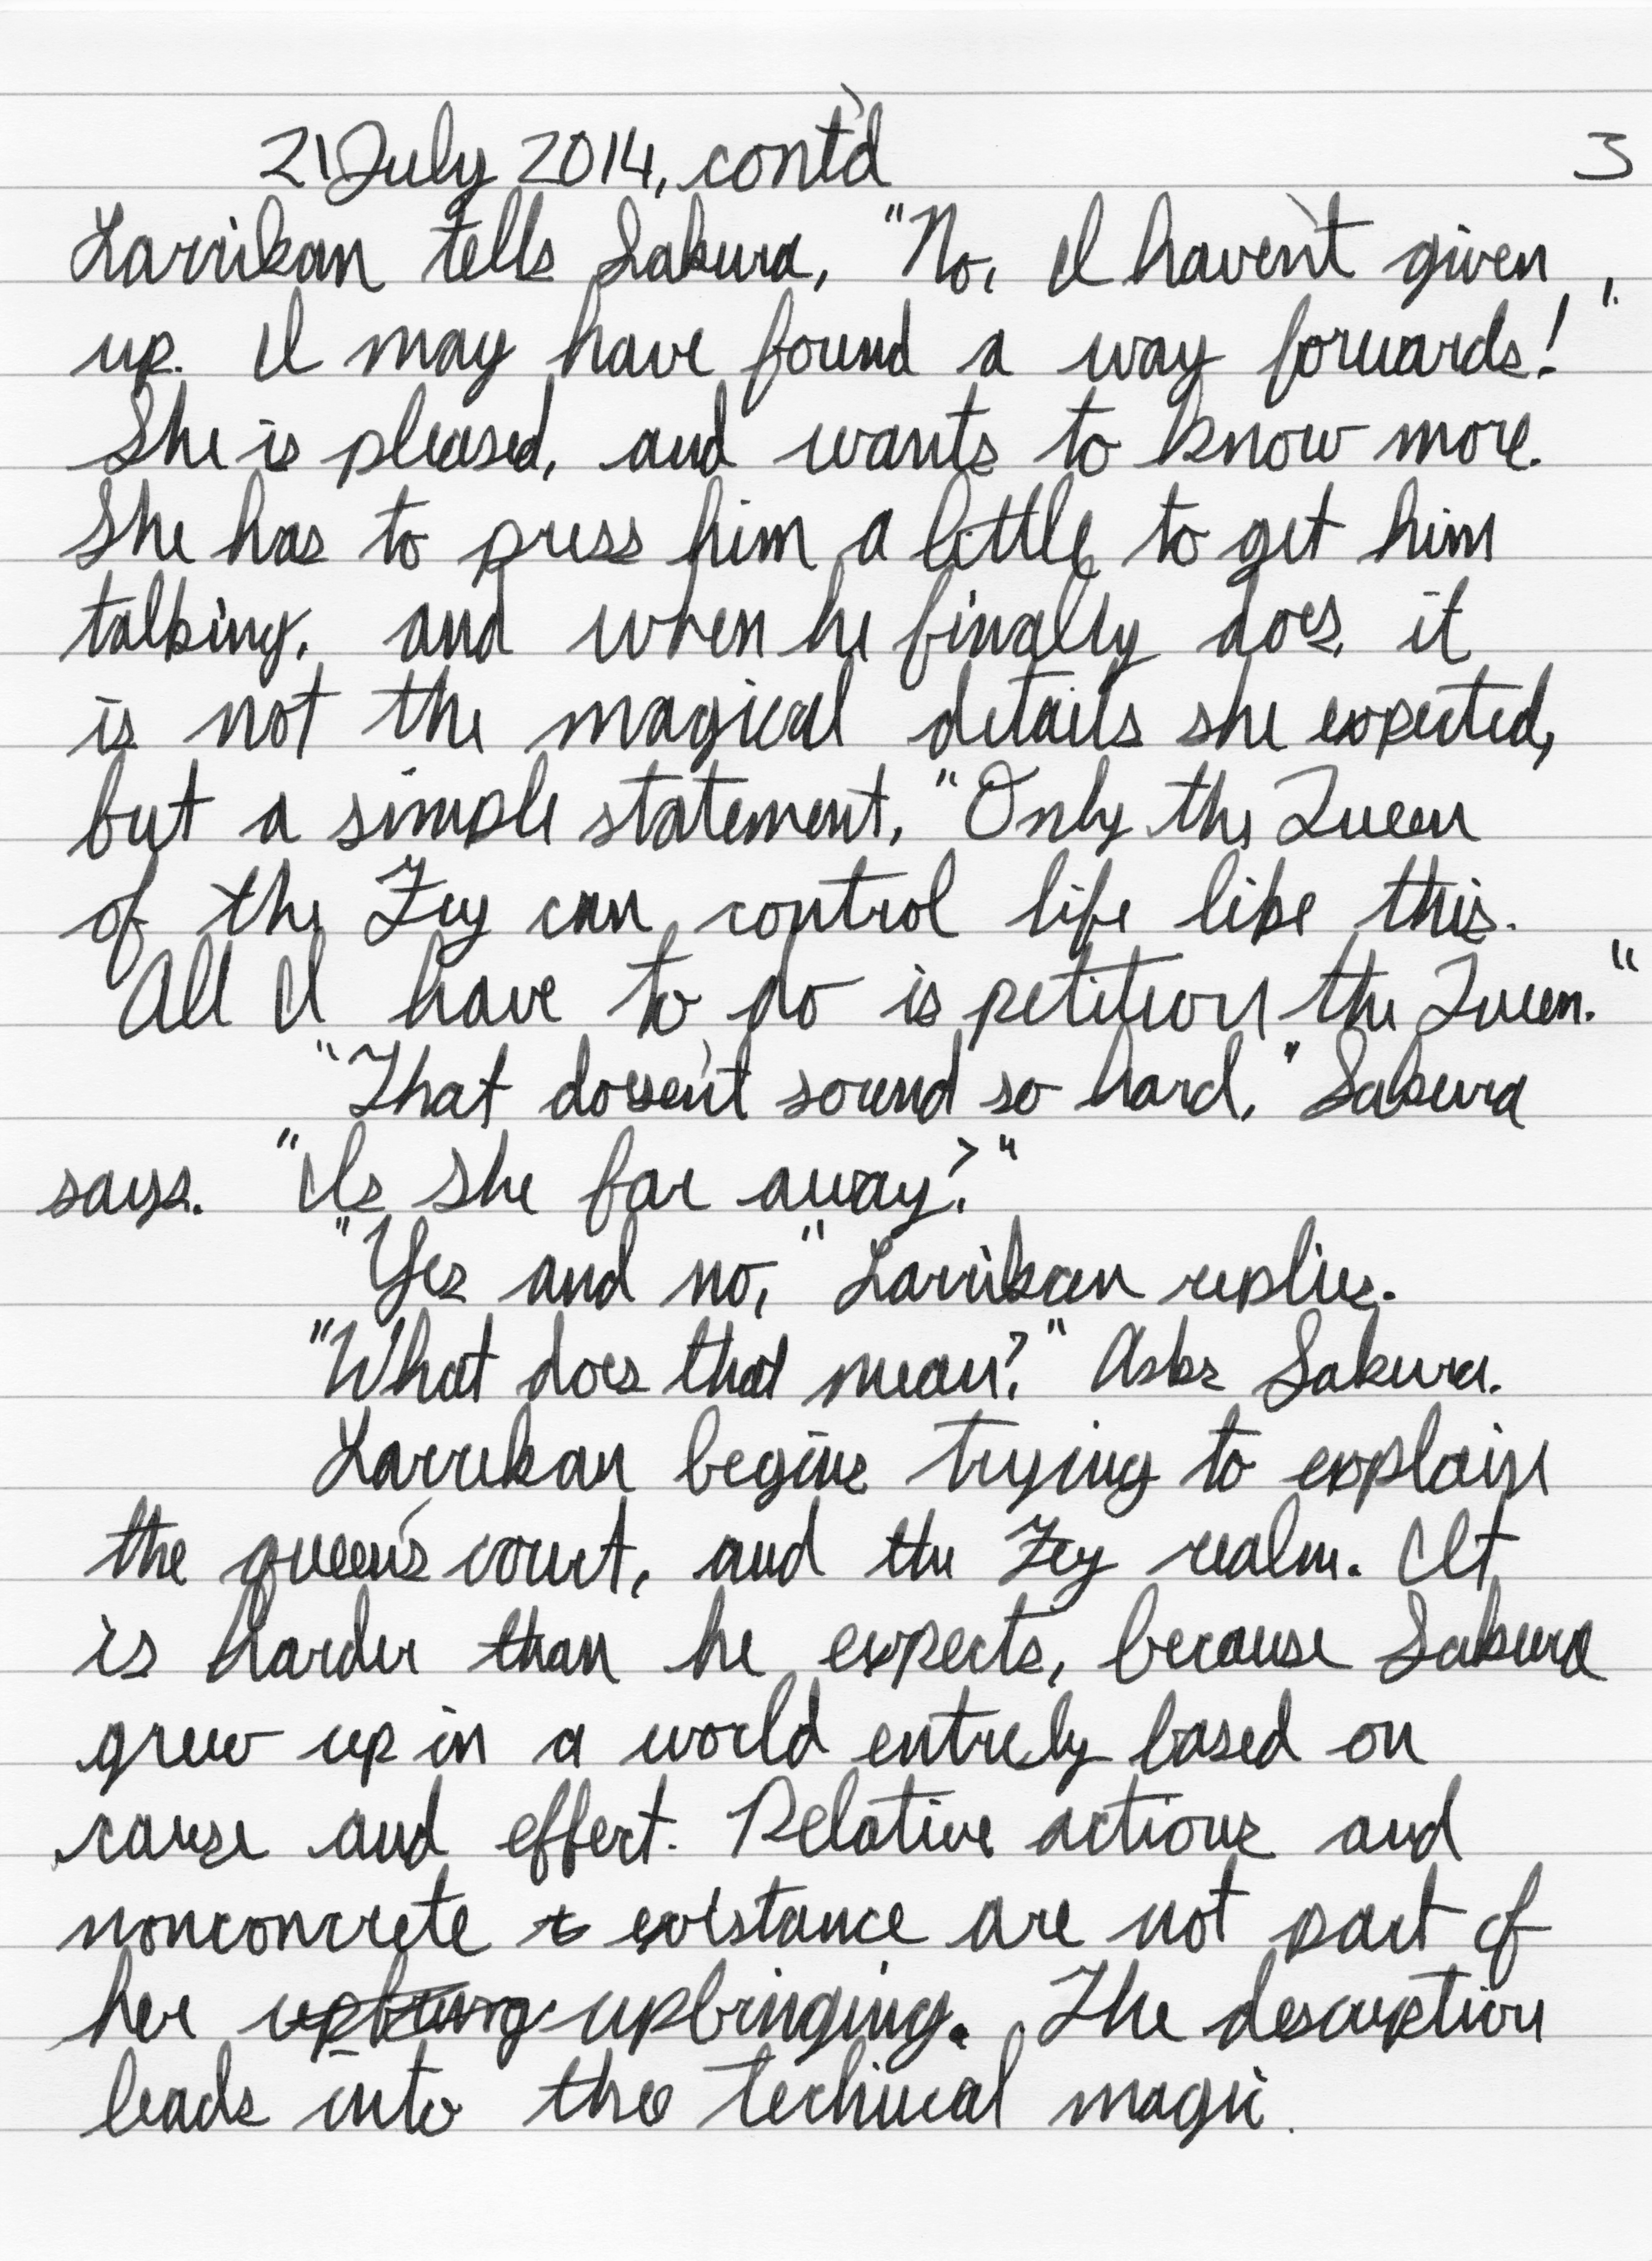 21 July 2014, cont'd 3
Larrikan tells Sakura, "No, I haven't given
up. I may have found a way forwards!"
She is pleased, and wants to know more.
She has to press him a little to get him
talking, and when he finally does, it
is not the magical details she expected,
but a simple statement, "Only the Queen
of the Fey can control life like this.
All I have to do is petition the Queen."
"That doesn't sound so hard," Sakura
says. "Is she far away?"
"Yes and no," Larrikan replies.
"What does that mean?" Asks Sakura.
Larrikan begins trying to explain
the queen's court, and the Fey realm. It
is harder than he expects, because Sakura
grew up in a world entirely based on
cause and effect. Relative actions and
nonconcrete existance are not part of
her upbrung upbringing. The description
leads into the technical magic.